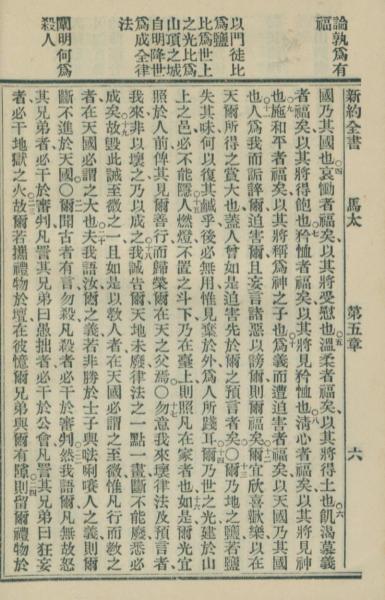 論孰爲有
福
以門徒比
爲鹽
比爲世上
之光比爲
山頂之城
自明降世
爲成全律
法
闡明何爲
殺人
新約全書 馬太 第五章 六
國乃其國也四哀慟者福矣以其將受慰也五溫柔者福矣以其將得土也六飢渴慕義
者福矣以其將得飽也七矜恤者福矣以其將見矜恤也八清心者福矣以其將見神
也九施和平者福矣以其將稱爲神之子也十爲義而遭迫害者福矣以天國乃其國
也十一人爲我而詬誶爾迫害爾且妄言諸惡以謗爾則福矣十二爾宜欣喜歡樂以在
天爾所得之賞大也蓋人曾如是迫害先於爾之預言者矣〇十三爾乃地之鹽若鹽
失其味何以復其鹹乎後必無用惟見棄於外爲人所踐耳十四爾乃世之光建於山
上之邑必不能隱十五人燃燈不置之斗下乃在臺上則照凡在家者也十六如是爾光宜
照於人前俾其見爾善行而歸榮爾在天之父焉〇十七勿意我來壞律法及預言者
我來非以壞之乃以成之十八我誠告爾天地未廢律法之一點一畫斷不能廢悉必
成矣十九故毀此誡至微之一且如是以敎人者在天國必謂之至微惟凡行而敎之
者在天國必謂之大也二十夫我語汝爾之義若非勝於士子與唎人之義則爾
斷不進於天國〇二一爾聞古者有言勿殺凡殺者必干於審判二二然我語爾凡無故怒
其兄弟者必干於審判凡詈其兄弟曰愚拙者必干於公會凡詈其兄弟曰狂妄
者必干地獄之火二三故爾若攜禮物於壇在彼憶爾兄弟與爾有隙二四則留爾禮物於